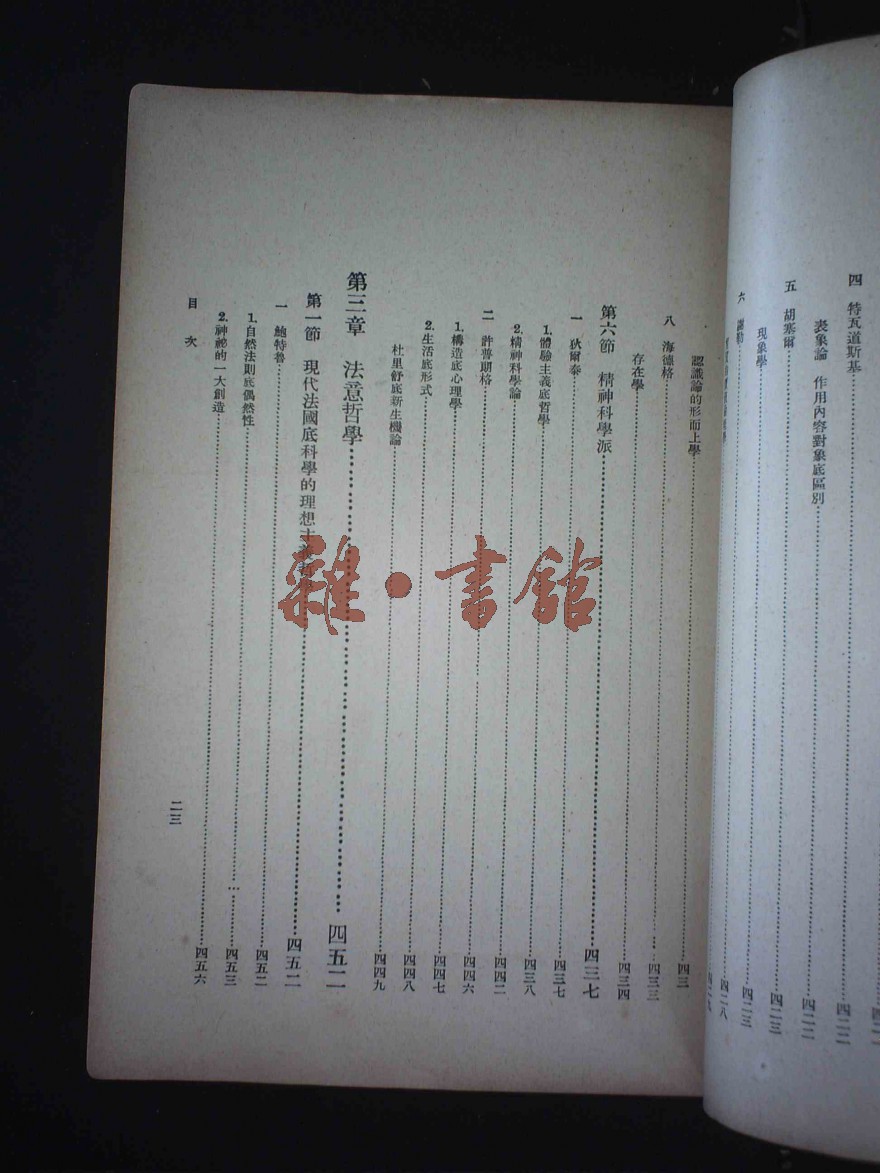 四 特瓦道斯基……四二二
表象論 作用內容對象底區別……四二二
五 胡塞爾……四二三
現象學……四二三
六……四二八
認識論的形而上學……四三
八 海德格……四三三
存在學……四三四
第六節 精神科學派……四三七
一 狄爾泰……四三七
1. 體驗主義底哲學……四三八
2. 精神科學論……四四二
二 許普朗格……四四六
1. 構造底心理學……四四七
2. 生活底形式……四四八
杜里舒底新生機論……四四九
第三章 法意哲學……四五二
第一節 現代法國底科學的理想主義……四五二
一 鮑特魯……四五二
1. 自然法則底偶然性……四五三
2. 神祕的一大創造……四五六
目 次
二三
雜·書館